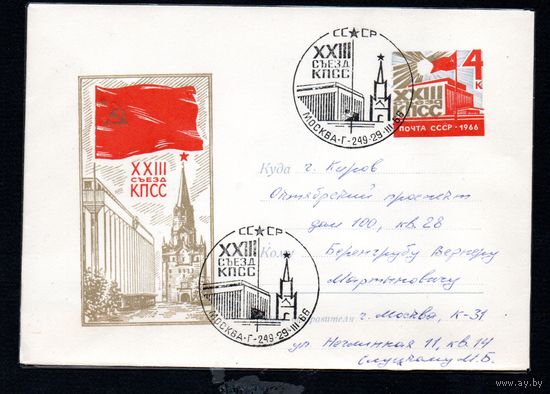 СССР
XXIII
СЪЕЗД
КПСС
МОСКВА-Г-249-29-III-66
4
К
XXIII
СЪЕЗД
КПСС
ПОЧТА СССР · 1966
XXIII
СЪЕЗД
КПСС
Куда г. Киров
Октябрьский проспект
дом 100, кв. 28
Кому Беренгрубу Вернеру
Мартыновичу
СССР
XXIII
СЪЕЗД
КПСС
МОСКВА-Г-249-29-III-66
г. Москва, К-31
ул Неглинная 11, кв. 14
Слуцкому М. Б.
www.ay.by